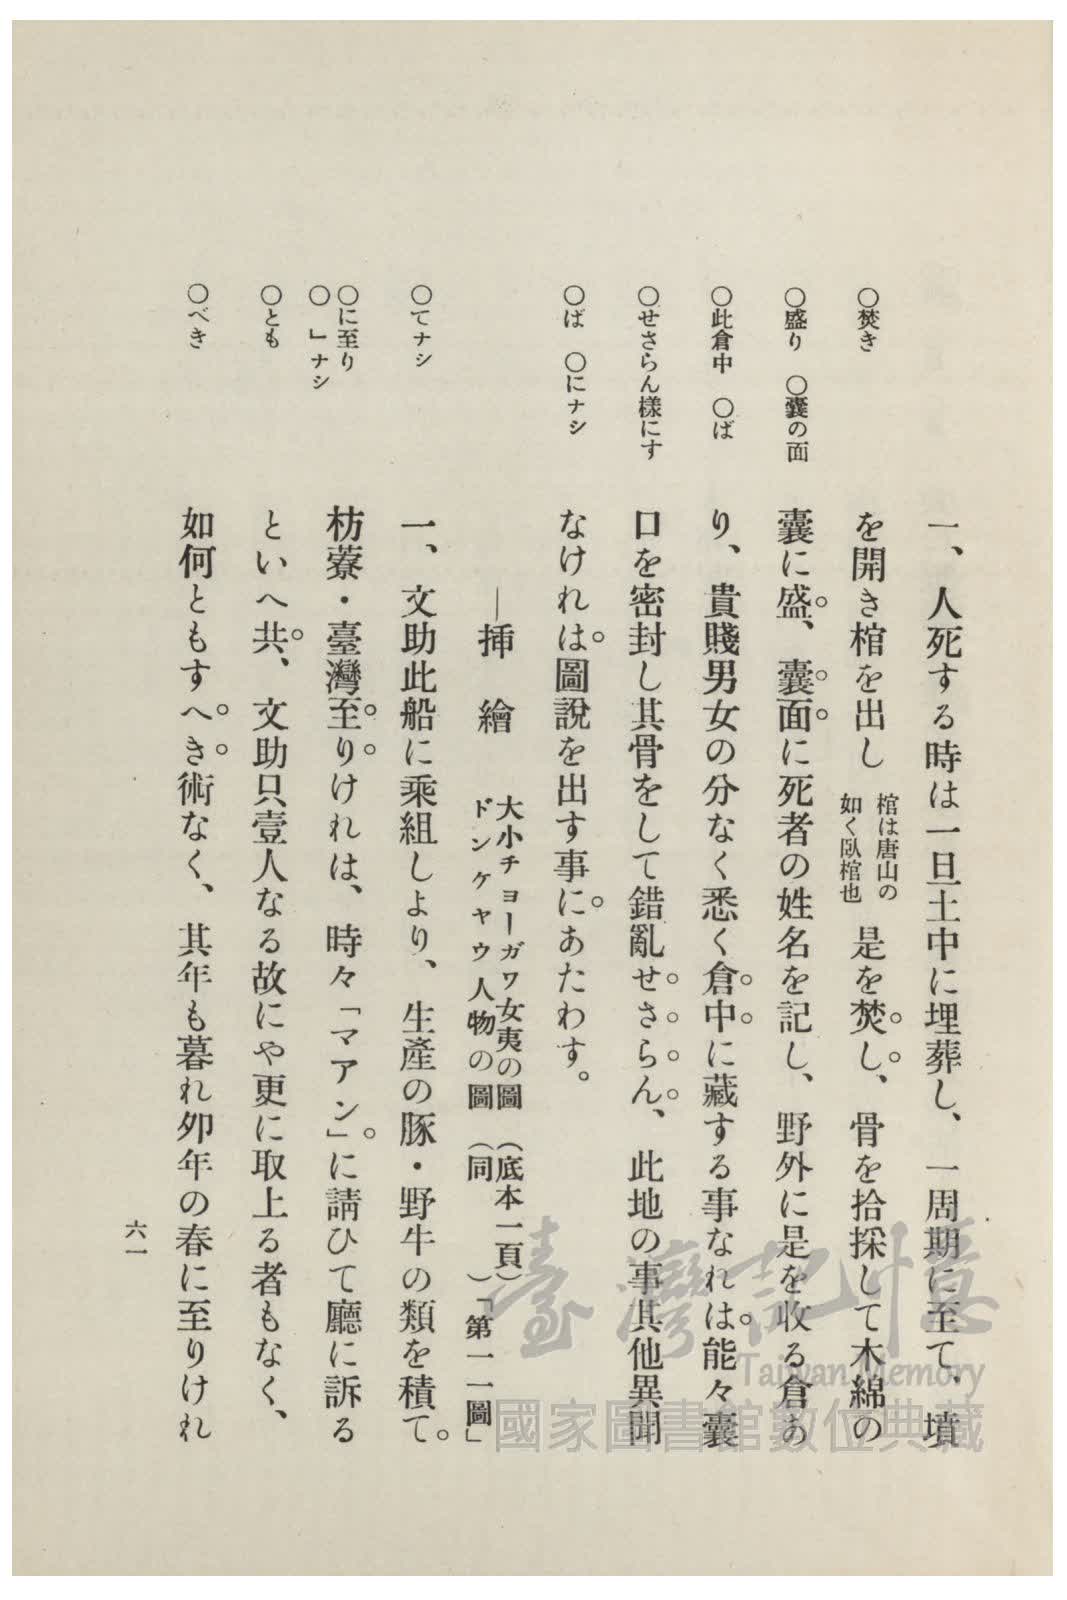 ○焚き
○盛り　○嚢の面
○此倉中　○ば
○せさらん樣にす
○ば　○にナシ
○てナシ
○に至り
○」ナシ
○とも
○べき
一、人死する時は一旦土中に埋葬し、一周期に至て、墳
を開き棺を出し
棺は唐山の
如く臥棺也
是を焚し、骨を拾採して木綿の
嚢に盛、嚢面に死者の姓名を記し、野外に是を收る倉あ
り、貴賤男女の分なく悉く倉中に藏する事なれは能々嚢
口を密封し其骨をして錯亂せさらん、此地の事其他異聞
なけれは圖説を出す事にあたわす。
―挿　繪
大小チョーガワ女夷の圖（底本一頁）
ドンケャウ人物の圖（同　　　）「第一一圖」
一、文助此船に乘組しより、生產の豚・野牛の類を積て
枋藔・臺灣至りけれは、時々「マアン」に請ひて廳に訴る
といへ共、文助只壹人なる故にや更に取上る者もなく、
如何ともすへき術なく、其年も暮れ夘年の春に至りけれ
六一
臺灣記憶
Taiwan Memory
國家圖書館數位典藏